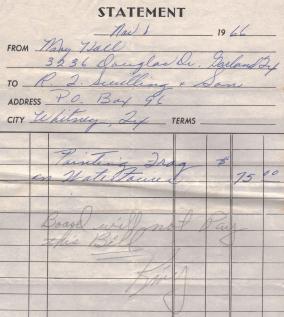 STATEMENT
Nov 1 1966
FROM Mary Hall
3236 Douglas Dr. Garland Tx
TO R. L. Swilling & Son
ADDRESS P.O. Box 96
CITY Whitney, Tx TERMS
Painting Frog $
on Water Tower 75 00
Board will not Pay
this Bill
King